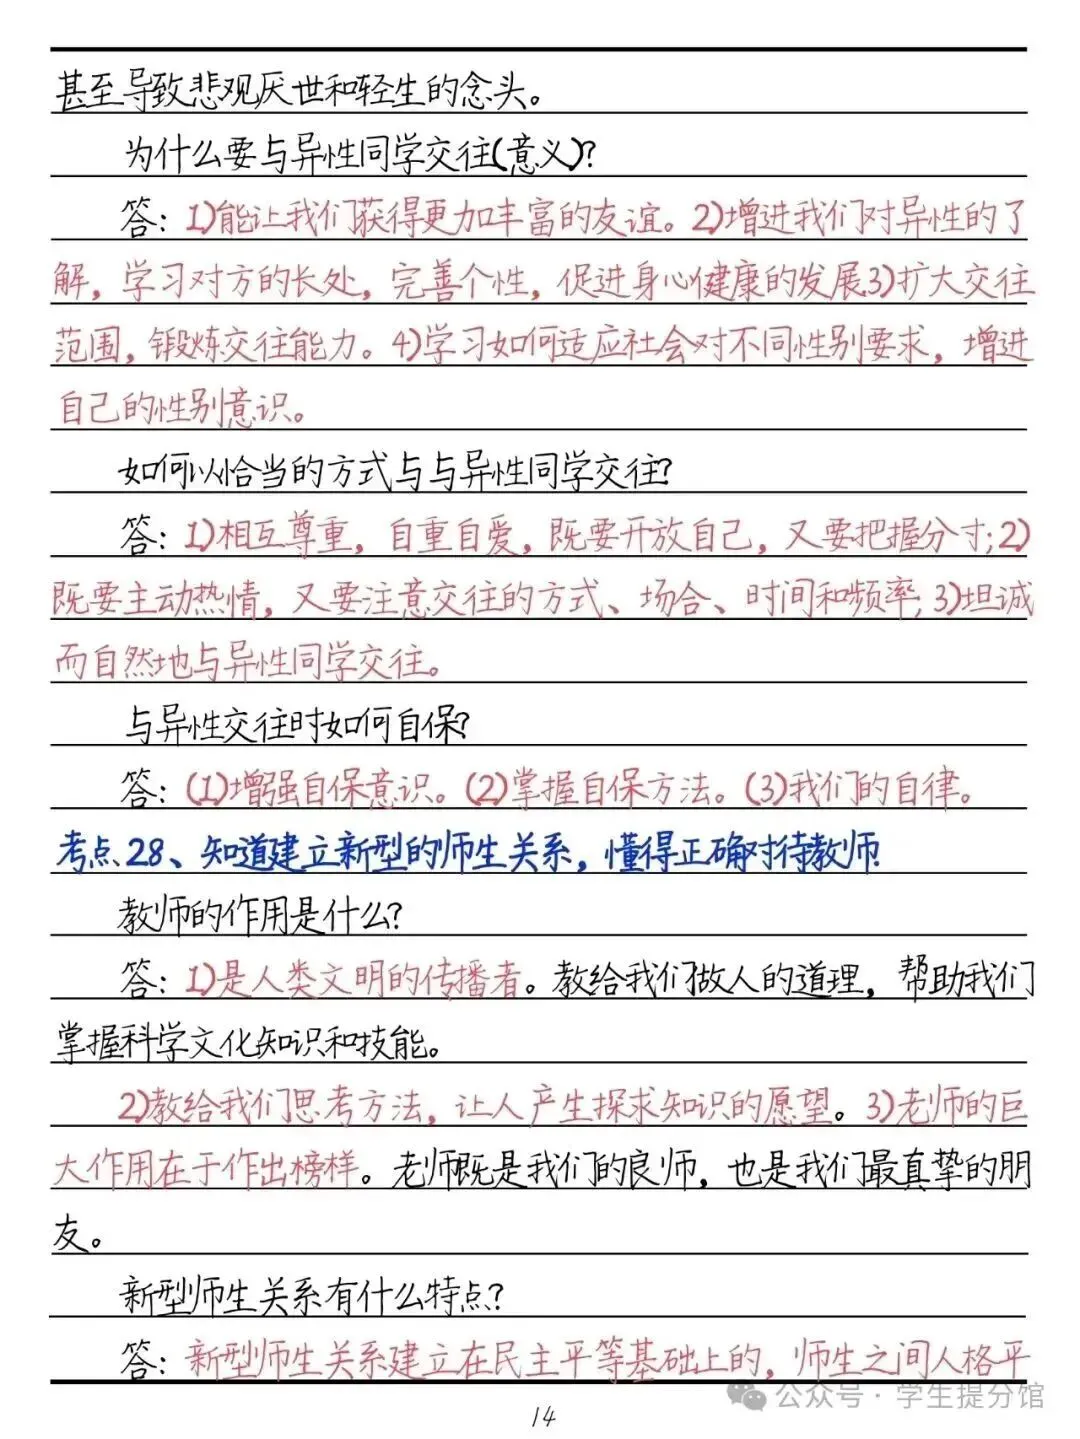 甚至导致悲观厌世和轻生的念头。
为什么要与异性同学交往(意义)?
答：1)能让我们获得更加丰富的友谊。2)增进我们对异性的了
解，学习对方的长处，完善个性，促进身心健康的发展3)扩大交往
范围，锻炼交往能力。4)学习如何适应社会对不同性别要求，增进
自己的性别意识。
如何以恰当的方式与与异性同学交往?
答：1)相互尊重，自重自爱，既要开放自己，又要把握分寸;2)
既要主动热情，又要注意交往的方式、场合、时间和频率;3)坦诚
而自然地与异性同学交往。
与异性交往时如何自保?
答：(1)增强自保意识。(2)掌握自保方法。(3)我们的自律。
考点28、知道建立新型的师生关系，懂得正确对待教师
教师的作用是什么?
答：1)是人类文明的传播者。教给我们做人的道理，帮助我们
掌握科学文化知识和技能。
2)教给我们思考方法，让人产生探求知识的愿望。3)老师的巨
大作用在于作出榜样。老师既是我们的良师，也是我们最真挚的朋
友。
新型师生关系有什么特点?
答：新型师生关系建立在民主平等基础上的，师生之间人格平
公众号·学生提分馆
14